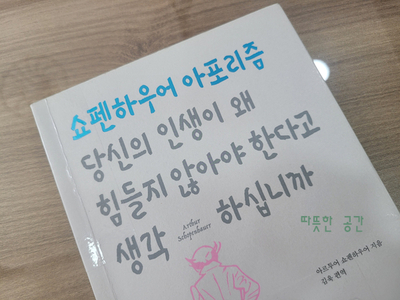 쇼펜하우어 아포리즘
당신의 인생이 왜
힘들지 않아야 한다고
생각 하십니까
Arthur
Schopenhauer
따뜻한 공간
아르투어 쇼펜하우어 지음
김욱 편역